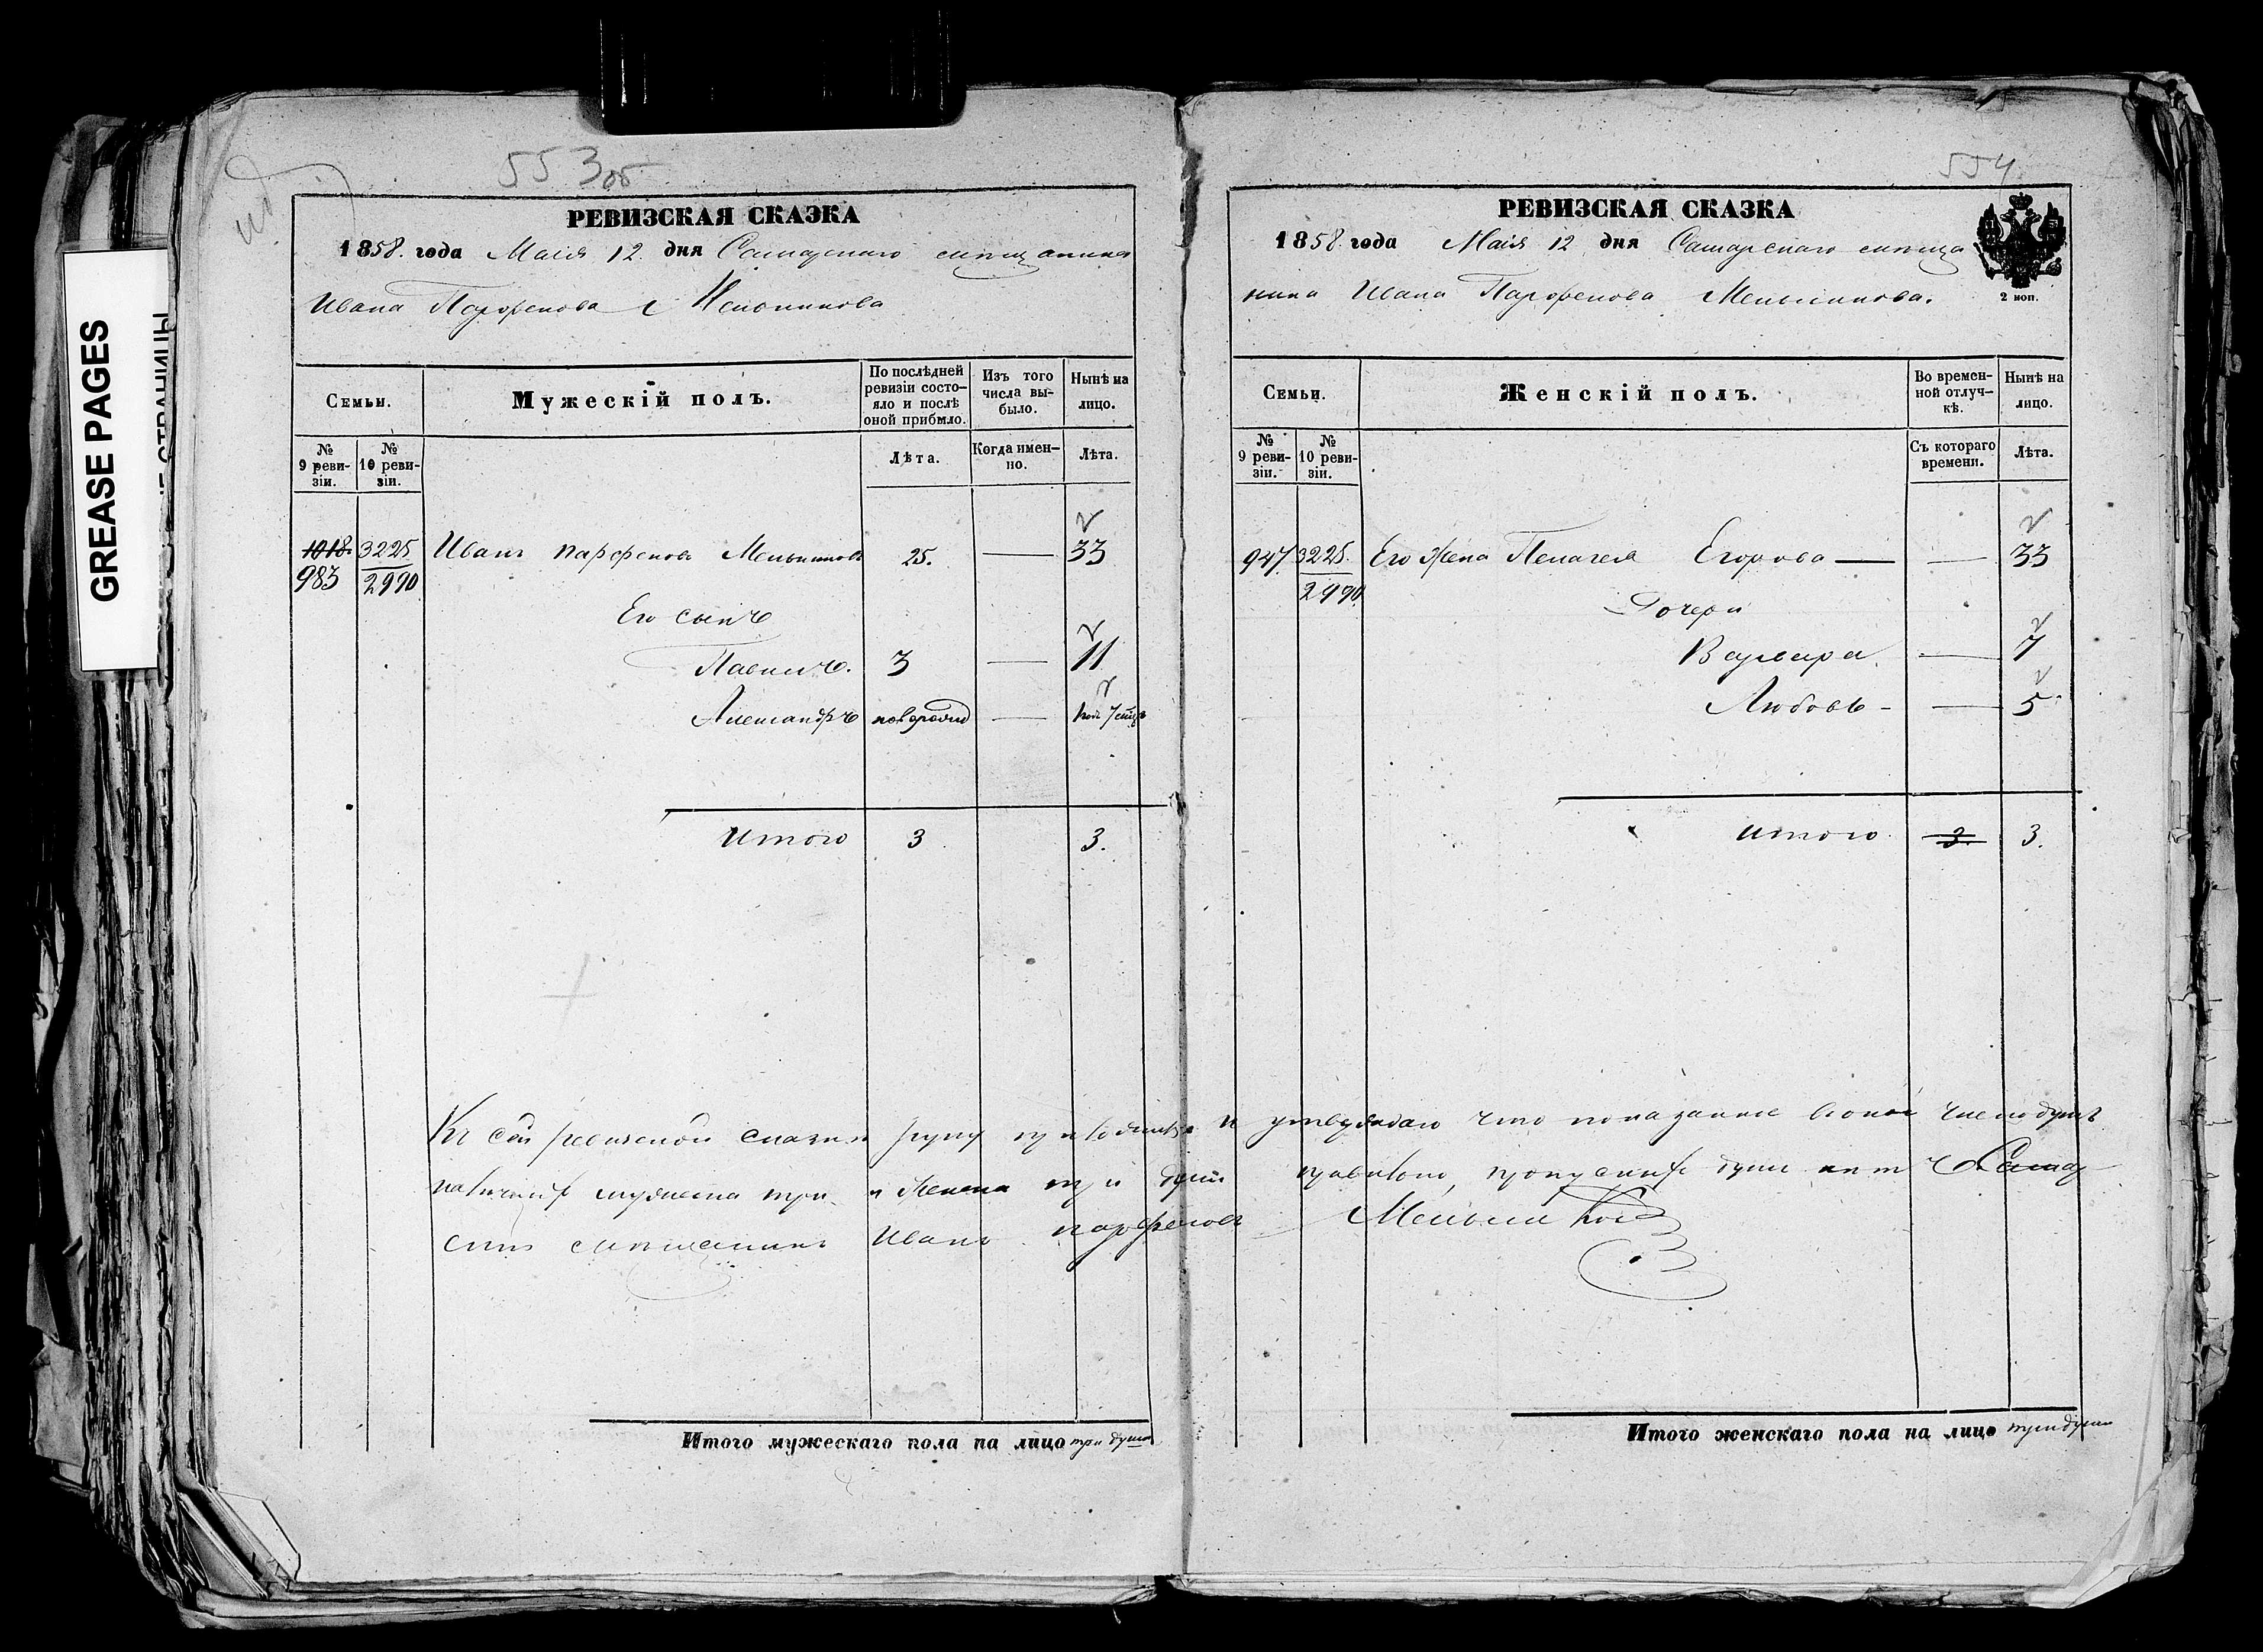 GREASE PAGES
СТРАНИЦЫ
553об
РЕВИЗСКАЯ СКАЗКА
1858. года Маія 12. дня Самарскаго мѣщанина
Ивана Парфенова Мельникова
Семьи.
Мужескій полъ.
По послѣдней ревизіи состояло и послѣ оной прибыло.
Изъ того числа выбыло.
Нынѣ на лицо.
№ 9 ревизіи.
№ 10 ревизіи.
Лѣта.
Когда именно.
Лѣта.
1018. 3225 Иванъ Парфеновъ Мельниковъ 25. — 33
983 2990
Его сынъ
Павилъ. 3 — 11
Александръ новорожд — 7 мѣц
Итого 3 3.
554
РЕВИЗСКАЯ СКАЗКА
1858. года Маія 12 дня Самарскаго мѣща
нина Ивана Парфенова Мельникова.
2 коп.
Семьи.
Женскій полъ.
Во временной отлучкѣ.
Нынѣ на лицо.
№ 9 ревизіи.
№ 10 ревизіи.
Съ котораго времени.
Лѣта.
947. 3225. Его Жена Пелагея Егорова — — 33
2990.
Дочери
Варвара. — 7
Любовь - — 5
итого 3. 3.
Къ сей ревиской сказки руку приводилъ и утверждаю что показанное въ оной число душъ
наличныхъ мужеска три и женска три души правильно, пропускныхъ душъ нѣтъ Самар
скій мѣщанинъ Иванъ Парфеновъ Мельниковъ
Итого мужескаго пола на лицо три души
Итого женскаго пола на лицо три души